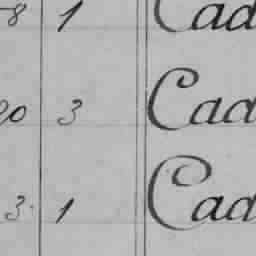 8 1 Cad
20 3 Cad
3. 1 Cad